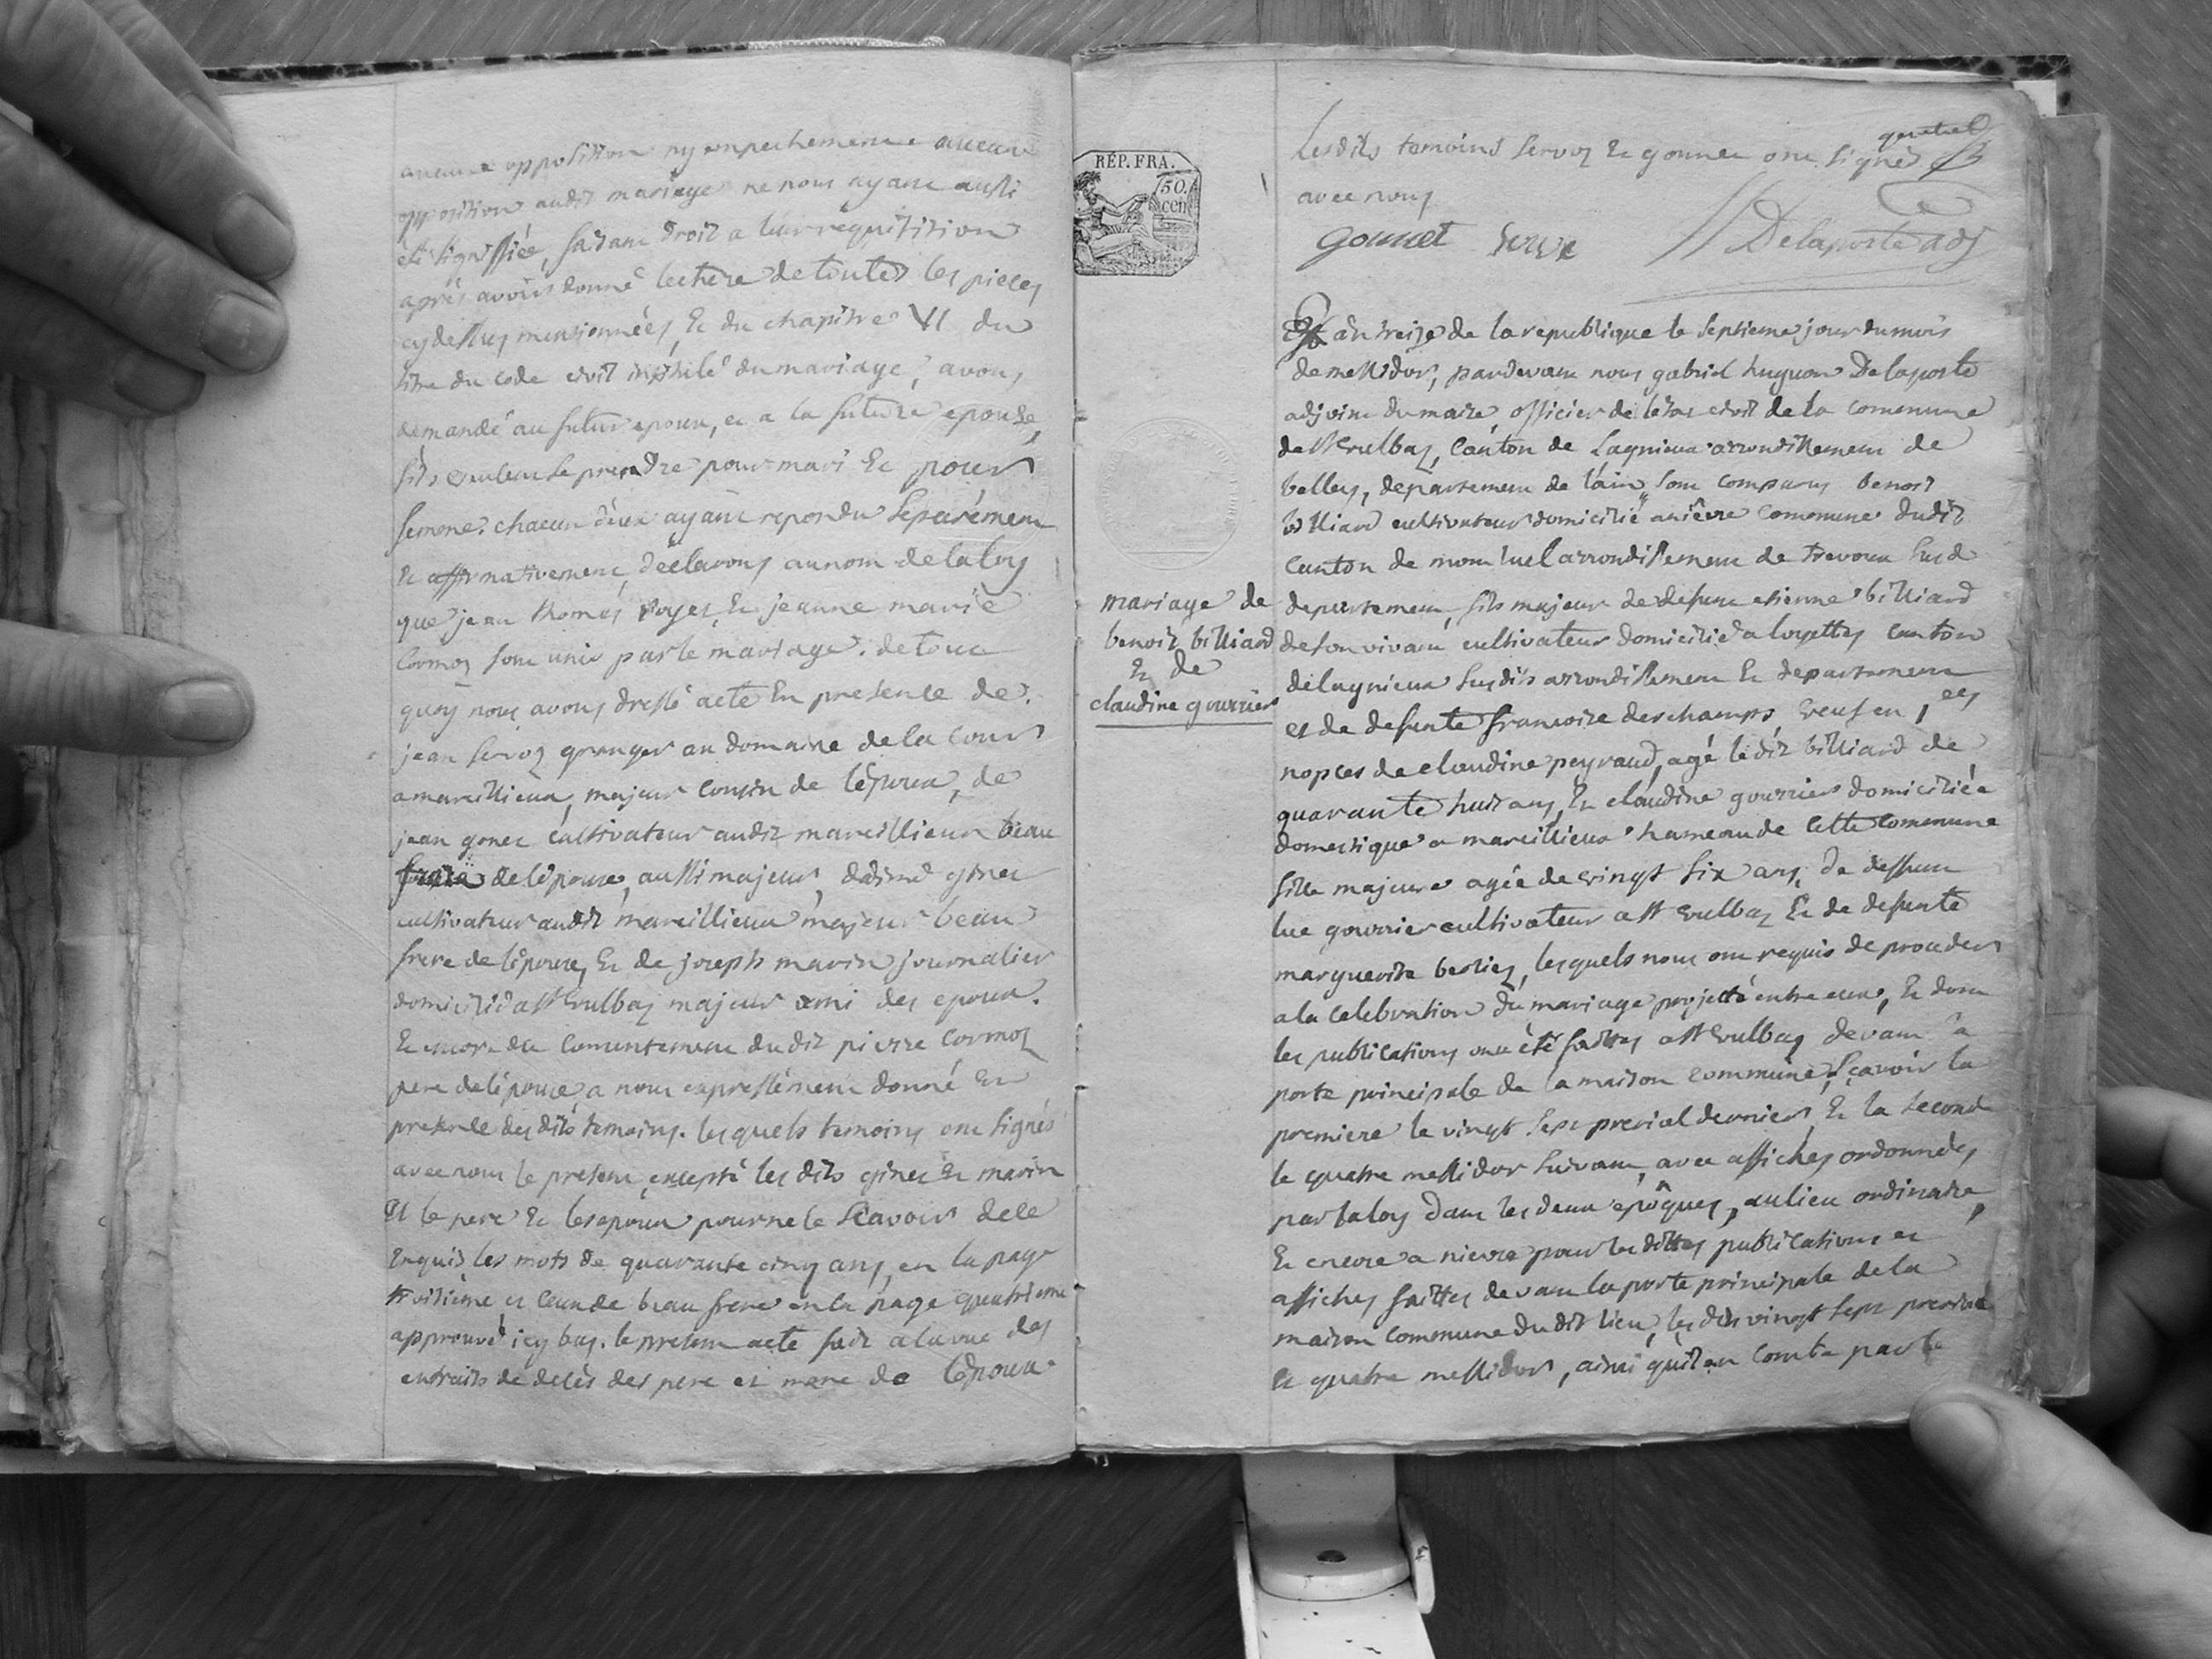 aucune opposition ny empechement aucune
opposition audit mariage ne nous ayant aussi
été signiffiée, faisant droit a leur requisition
après avoir donné lecture de toutes les pieces
cy dessus mensionnées, Et du chapitre VI du
titre du code civil intitulé du mariage, avons
demandé au futur epoux, et a la future epouse,
sils veulent se prendre pour mari Et pour
femme. chacun d'eux ayant repondu separément
Et affirmativement, déclarons au nom de la loy
que jean thomas royer, Et jeanne marie
Cormoz sont unis par le mariage. de tout
quoy nous avons dressé acte En presence de
jean servoz granger au domaine de la cour
a marcillieux, majeur cousin de l'epoux, de
jean gonet cultivateur audit marcillieux beau
frere de l'epouse, aussi majeur, ginet
cultivateur audit marcillieux majeur beau
frere de l'epouse, Et de joseph marin journalier
domicilié a st vulbaz majeur ami des epoux.
Et encore du consentement dudit pierre Cormoz
pere de l'epouse, a nous expressément donné En
presence desdits temoins. lesquels temoins ont signés
avec nous le present, excepté les dits ginet Et marin
Et le pere Et les epoux pour ne le scavoir de ce
Enquis les mots de quarante cinq ans, en la page
troisième et ceux de beau frere en la page quatrieme
approuvé icy bas. le present acte fait a la vue des
extraits de decès des pere et mere de l'epoux
Lesdits temoins servoz Et gonnet ont signés
avec nous
gonnet serve Delaporte adj
mariage de
benoit billiard
Et de
claudine gourrier
RÉP. FRA.
50.
cen
an treize de la republique le septieme jour du mois
de messidor, pardevant nous gabriel huguon Delaporte
adjoint du maire, officier de l'état civil de la commune
de st vulbaz, canton de Lagnieux arrondissement de
belley, departement de l'ain, sont comparus benoit
billiard cultivateur domicilié a nièvre commune dudit
canton de montluel arrondissement de trevoux susd
departement, fils majeur de defunt etienne billiard
de son vivant cultivateur domicilié a loyettes canton
de lagnieux susdits arrondissement Et departement
et de defunte françoise deschamps, veuf en 1ees
nopces de claudine peyraud, agé le dit billiard de
quarante huit ans, Et claudine gourrier domiciliée
domestique a marcillieux hameau de cette commune
fille majeure agée de vingt six ans, de deffunt
luc gourrier cultivateur a st vulbaz Et de defunte
marguerite berliez, lesquels nous ont requis de proceder
a la celebration du mariage projetté entre eux, Et dont
les publications ont été faittes a st vulbaz devant la
porte principale de la maison commune, sçavoir la
premiere le vingt sept prerial dernier, Et la seconde
le quatre messidor suivant, avec affiches ordonnées
par la loy dans les deux epôques, au lieu ordinaire,
Et encore a nievre pour les dittes publications et
affiches faittes devant la porte principale de la
maison commune dudit lieu, les dits vingt sept prerial
Et quatre messidor, ainsi qu'il en conste par le